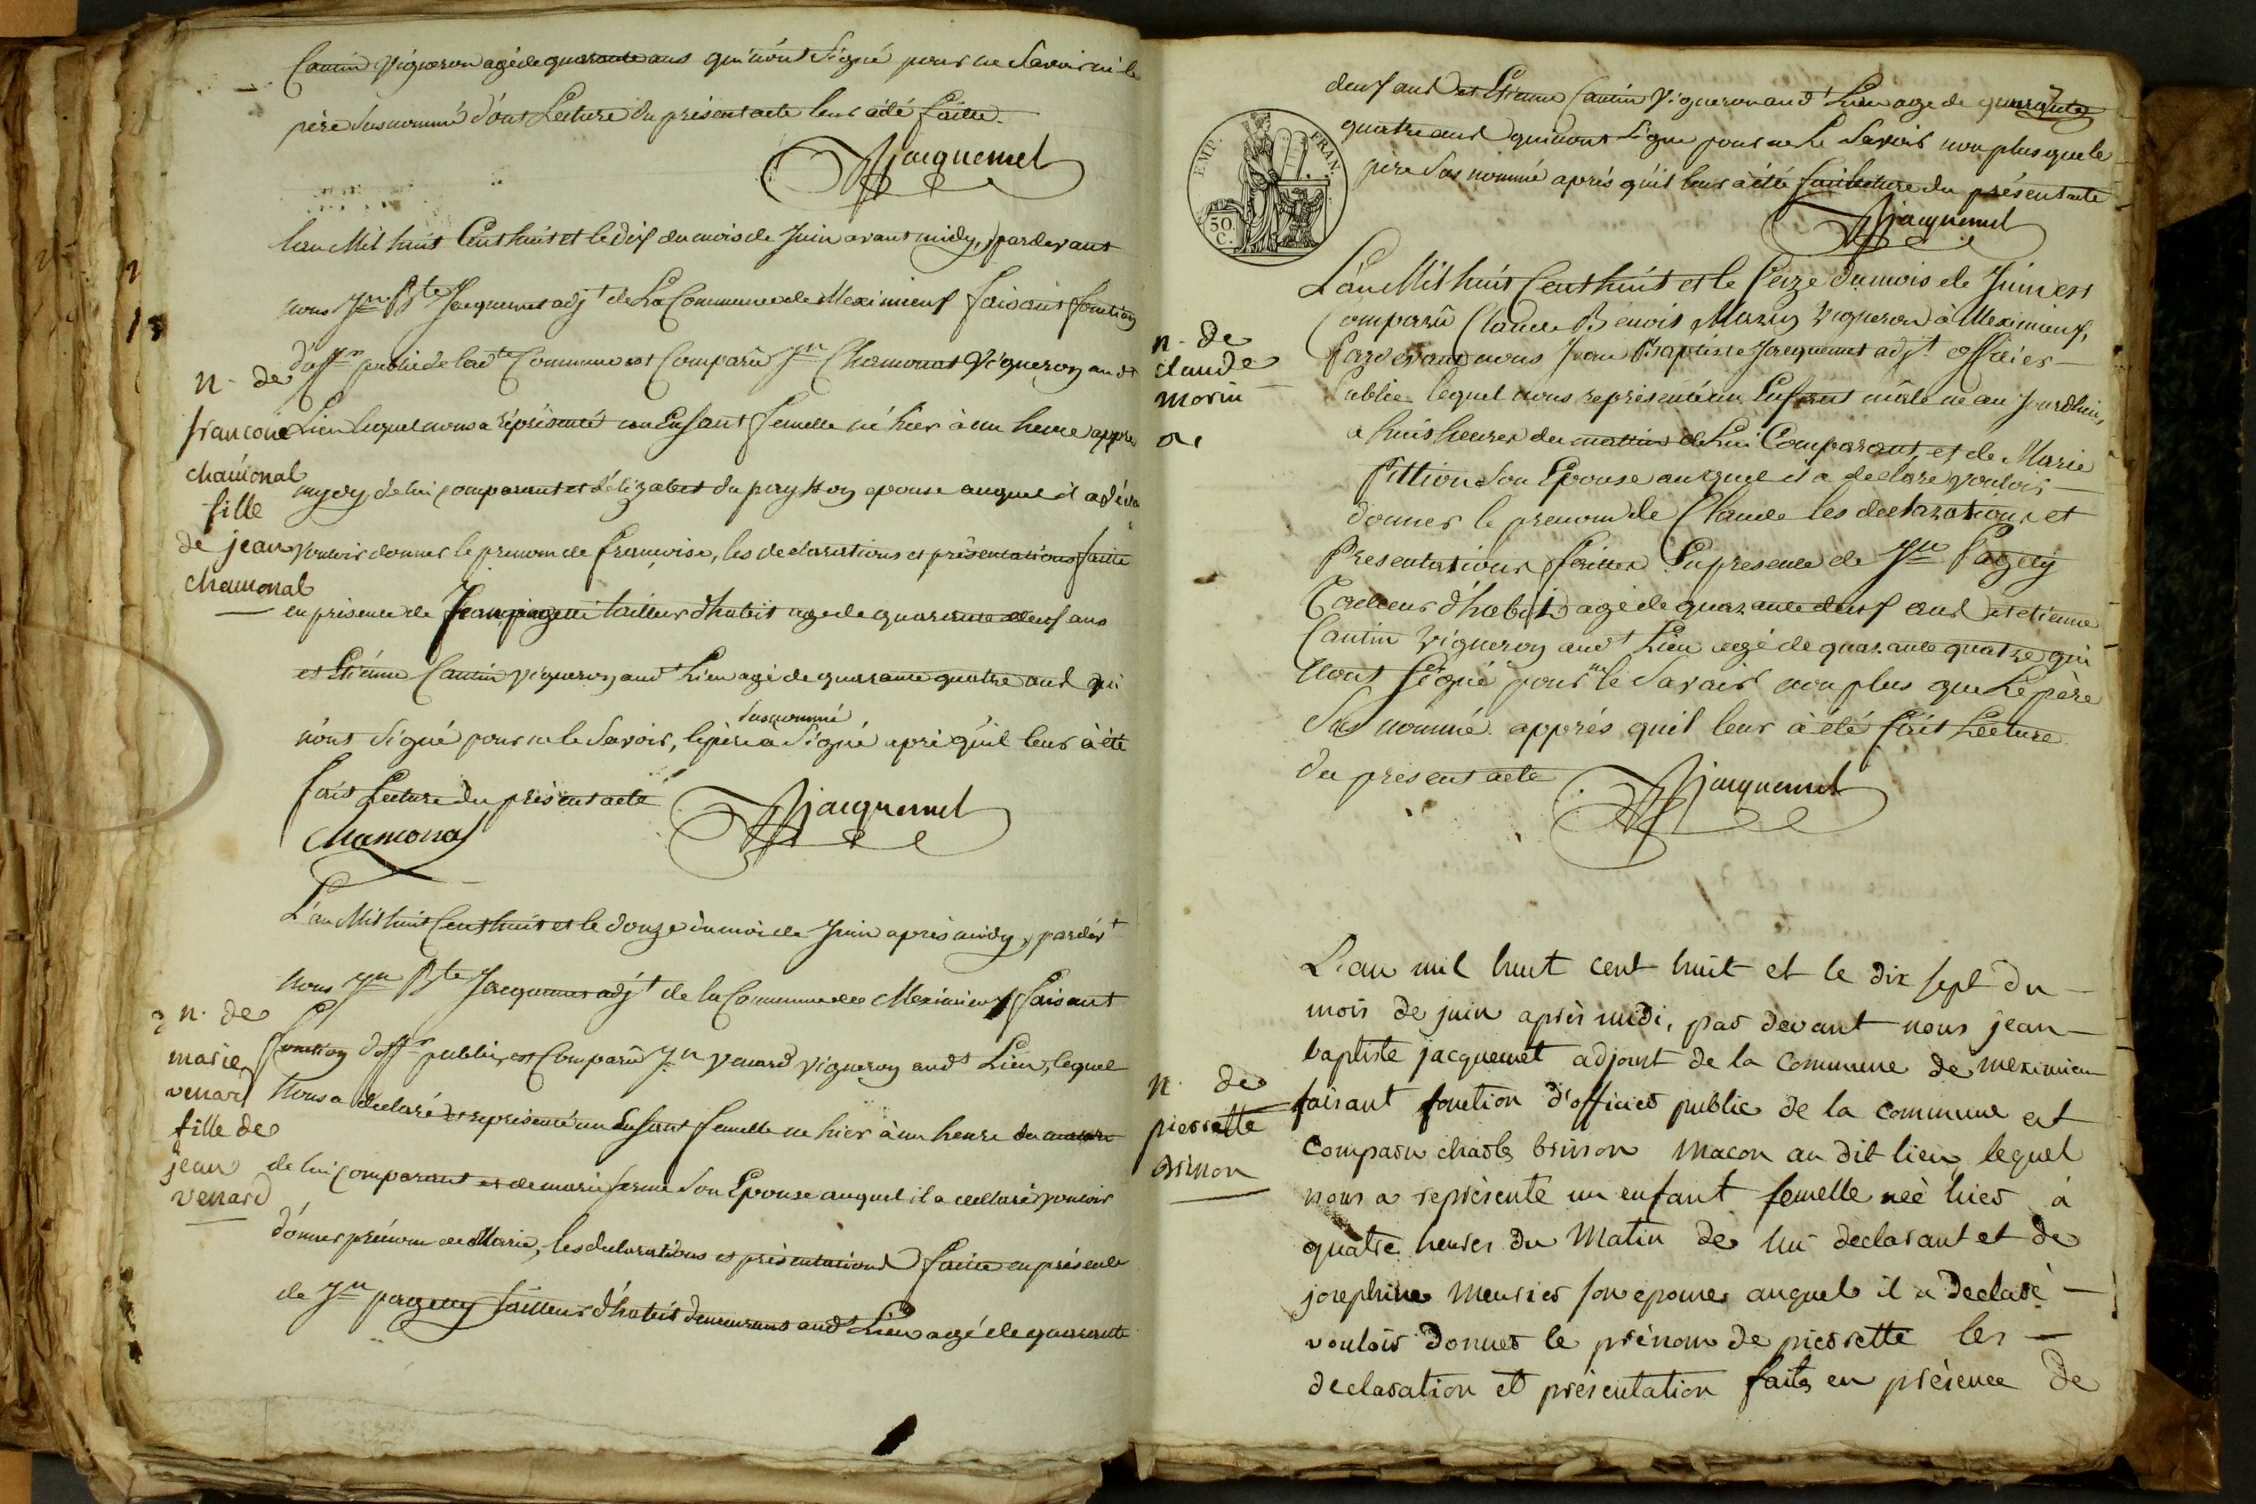 Cantin Vigneron agé de quarante ans qui n'ont Signé pour ne Savoir ni le
père Susnommé d'ont Lecture du présent acte leur a été faitte
Jacquemet
Lan Mil huit Cent huit et le dix du mois de Juin avant midy, pardevant
nous Jn Bte Jacquemet adjt de La Commune de Meximieux faisant fonction
d'offr public de ladte Commune est Comparu Jn Chamonat Vigneron audt
Lieu Lequel nous a réprésenté un Enfant femelle né hier à une heure après
mydy, de lui Comparant et d'élizabet du peysson epouse auquel il a déclaré
vouloir donner le prenom de françoise, les declarations et présentations faitte
en présence de Jean pagetti tailleur d'habit age de quarante deux ans
et Etienne Cantin vigneron audt Lieu agé de quarante quatre ans qui
n'ont Signé pour ne le Savoir, le père Susnommé à Signé aprè qu'il leur à été
fait Lecture du présent acte
Chamonat
Jacquemet
n. de
francoise
chamonal
fille
de jean
chamonal
L'an Mil huit Cent huit et le douze du mois de Juin après midy, pardevt
nous Jn Bte Jacquemet adjt de la Commune de Meximieux faisant
fonction d'offr public, est Comparu Jn Venard vigneron audt Lieu, lequel
nous a déclaré et représenté un Enfant femelle né hier à une heure du
de lui Comparant et de marie son Epouse auquel il a declaré vouloir
d'onner prénom de Marie, les declarations et présentations faitte en présence
de Jn pagetty tailleur d'habit demeurant audt Lieu agé de quarante
n. de
marie
venard
fille de
jean
venard
deux ans et Etienne Cantin Vigneron audt Lieu age de quarante
quatre ans qui n'ont Signé pour ne Le Savoir non plus que le
père Sus nommé après qu'il leur à été fait lecture du présent acte
Jacquemet
EMP. FRAN.
50.
C.
L'an Mil huit Cent huit et le Seize du mois de Juin est
Comparû Claude Benoit Morin Vigneron à Meximieux,
Pardevant nous Jean Baptiste Jacquemet adjt officier
public lequel nous représenté un Enfant mâle né au Jourd'hui,
a huit heures du mattin de Lui Comparant, et de Marie
Pittion Son Epouse auquel il a declaré vouloir
donner le prenom de Claude les declarations et
Presentations faittes En presence de Jn Pagety
Tailleur d'habit agé de quarante deux ans et etienne
Cantin Vigneron audt Lieu agé de quarante quatre qui
N'ont Signé pour ne le Savoir non plus que Le père
Sus nommé apprés qu'il leur à été fait Lecture
du present acte
Jacquemet
n. de
claude
morin
L'an mil huit cent huit et le dix sept du
mois de juin après midi, par devant nous jean
baptiste jacquemet adjoint de la commune de meximieu
faisant fonction d'officier public de la commune est
comparu charles brinon Macon au dit lieu lequel
nous a représenté un enfant femelle neè hier à
quatre heures du Matin de lui declarant et de
josephine Meusier son epouse auquel il a declaré
vouloir donner le prénom de pierrette les
declaration et présentation faites en présence de
n. de
pierrette
brinon